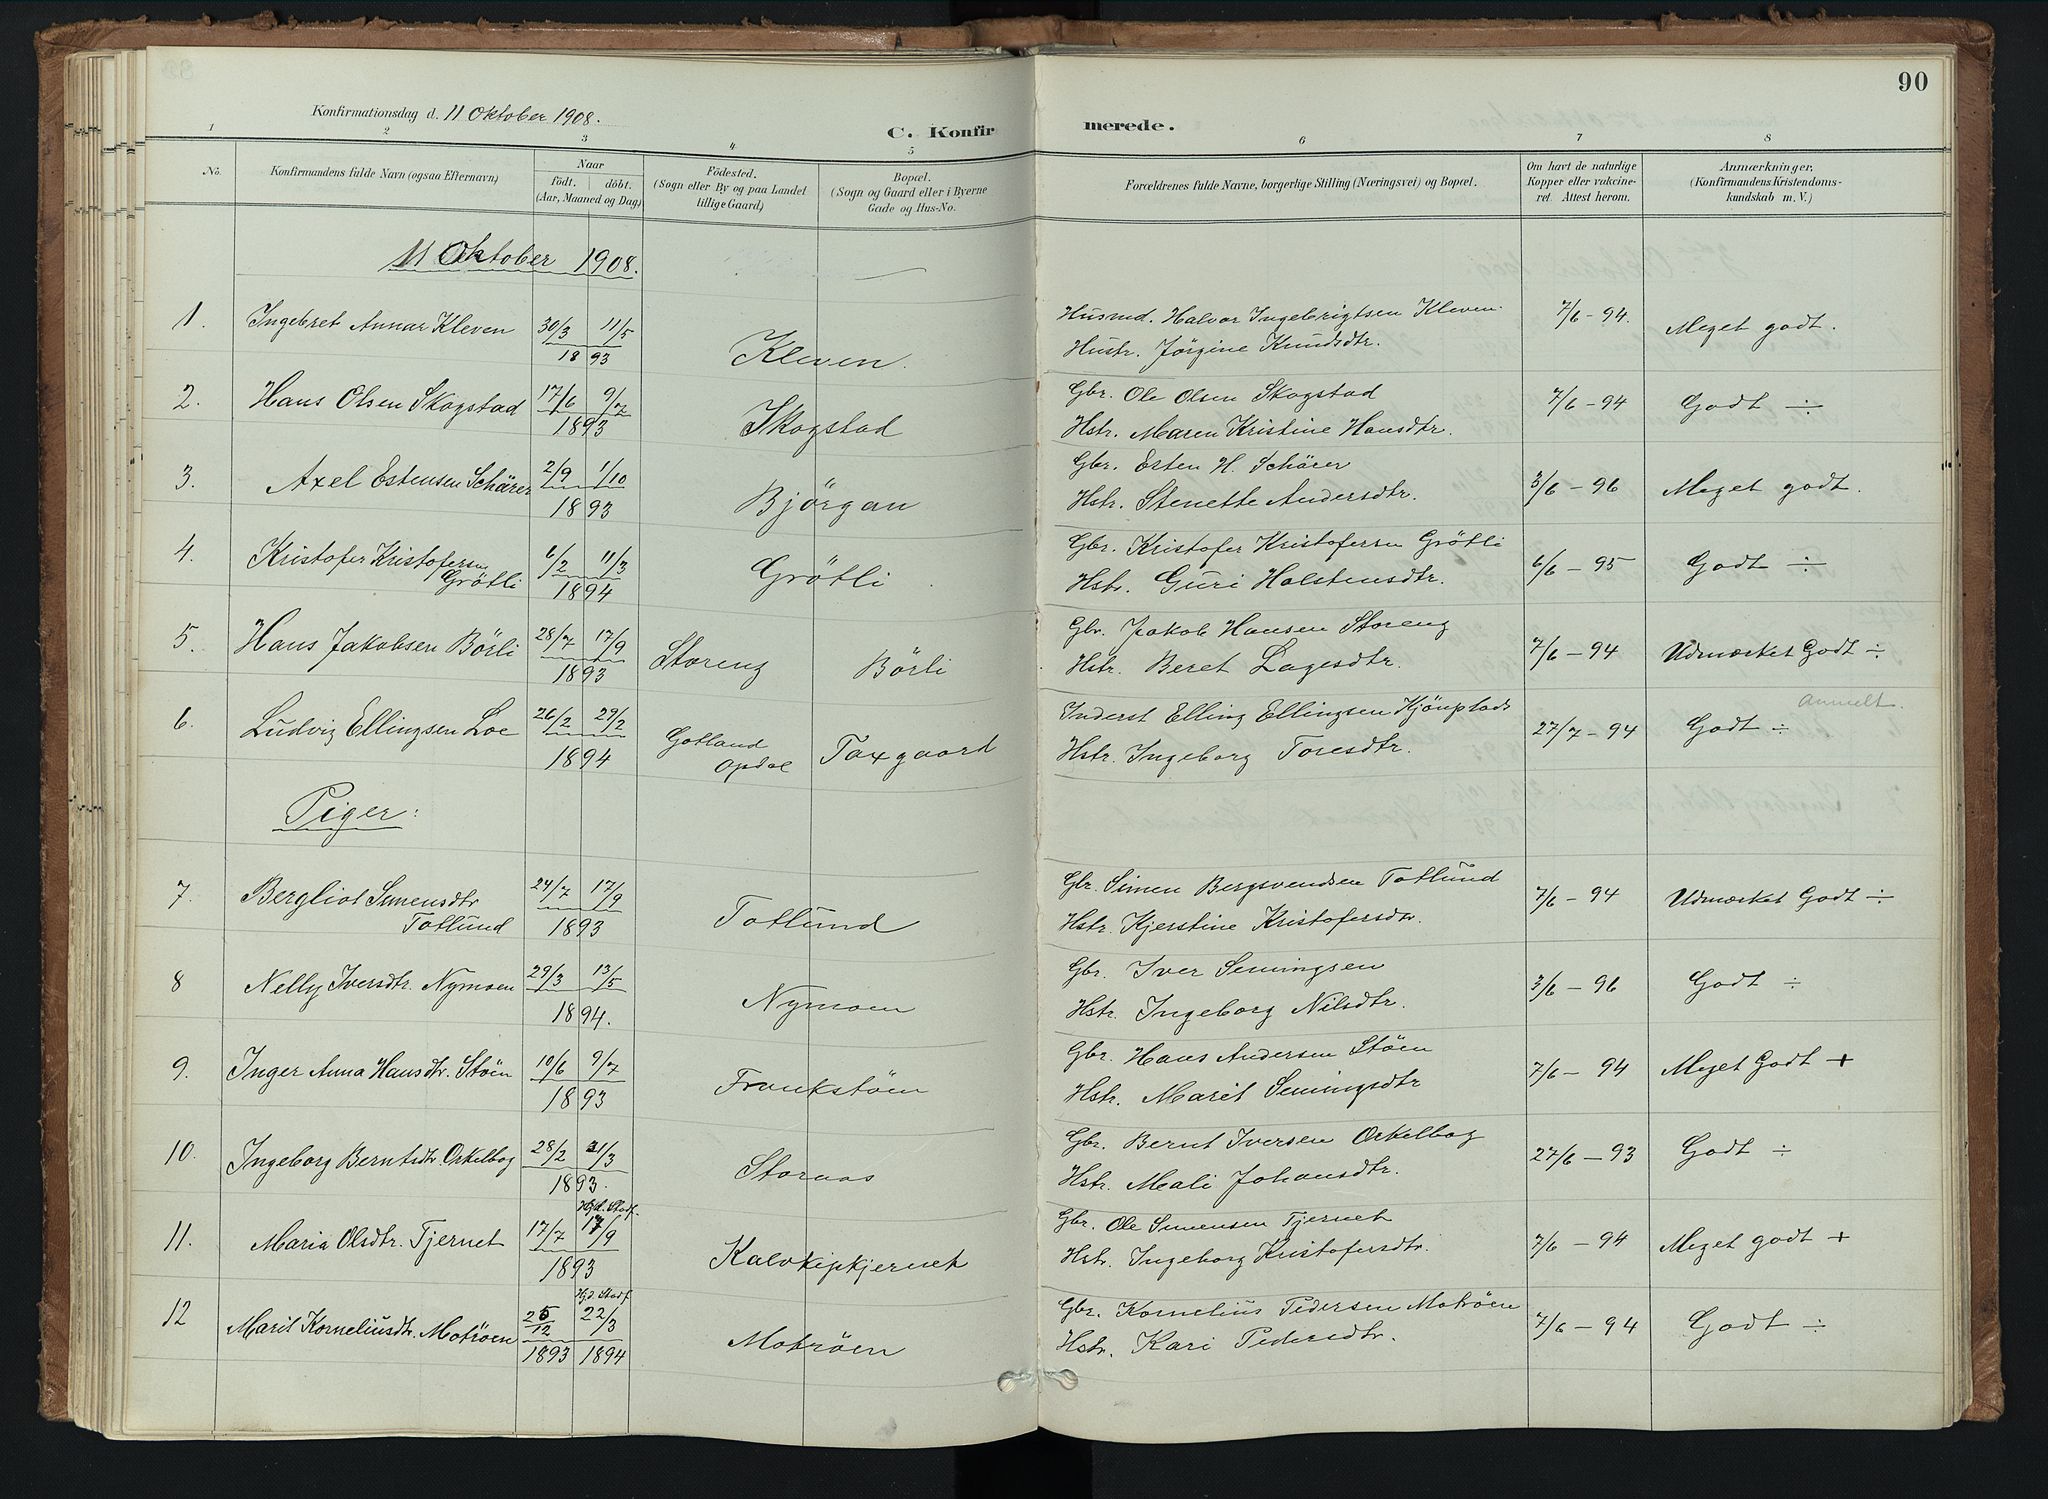 90
Konfirmationsdag d. 11 Oktober 1908.
C. Konfirmerede.
1 2 3 4 5 6 7 8
No.
Konfirmandens fulde Navn (ogsaa Efternavn).
Naar
født. døbt.
(Aar, Maaned og Dag)
Födested.
(Sogn eller By og paa Landet
tillige Gaard)
Bopæl.
(Sogn og Gaard eller i Byerne
Gade og Hus-No.
Forældrenes fulde Navne, borgerlige Stilling (Næringsvei) og Bopæl.
Om havt de naturlige
Kopper eller vakcine-
ret. Attest herom.
Anmærkninger.
(Konfirmandens Kristendoms-
kundskab m. V.)
11 Oktober 1908.
1. Ingebret Annar Kleven 30/3 11/5 Husmd. Halvor Ingebrigtsen Kleven 7/6 - 94. Meget godt.
1893 Kleven. Hustr. Jørgine Knudsdtr.
2. Hans Olsen Skogstad 17/6 9/7 Gbr. Ole Olsen Skogstad 7/6 - 94 Godt ÷
1893 Skogstad Hstr. Maren Kristine Hansdtr.
3. Axel Estensen Schärer 2/9 1/10 Gbr. Esten H. Schärer 3/6 - 96 Meget godt.
1893 Bjørgan Hstr. Stenette Andersdtr.
4. Kristofer Kristofersen 6/2 11/3 Gbr. Kristofer Kristofersen Grötli 6/6 - 95 Godt ÷
Grötli 1894 Grötli. Hstr. Guri Holstensdtr.
5. Hans Jakobsen Börli 28/7 17/9 Gbr. Jakob Hansen Storeng 7/6 - 94 Udmærket Godt ÷
1893 Storeng Börli Hstr. Beret Lagesdtr.
Anmelt.
6. Ludvig Ellingsen Loe 26/2 29/2 Inderst Elling Ellingsen 27/7 - 94 Godt ÷
1894 Gotland Taxgaard Hstr. Ingeborg Toresdtr.
Opdal
Piger:
7. Bergliot Simensdtr 24/7 17/9 Gbr. Simen Bergsvendsen Totlund 7/6 - 94 Udmærket Godt ÷
Totlund 1893 Totlund Hstr. Kjerstine Kristofersdtr.
8 Nelly Iversdtr. Nymoen 29/3 13/5 Gbr. Iver Semingsen 3/6 - 96 Godt ÷
1894. Nymoen Hstr. Ingeborg Nilsdtr.
9. Inger Anna Hansdtr. Stöen 10/6 9/7 Gbr. Hans Andersen Stöen 7/6 - 94 Meget Godt +
1893 Frankstöen Hstr. Marit Semingsdtr
10. Ingeborg Berntsdtr. Orkelbog 28/2 21/3 Gbr. Bernt Iversen Orkelbog 27/6 - 93 Godt ÷
1893. Storaas Hstr. Mali Johansdtr.
Hjd. Stadf.
11. Maria Olsdtr. Tjernet 17/7 17/9 Gbr. Ole Simensen Tjernet 7/6 - 94 Meget godt +
1893 Hstr. Ingeborg Kristofersdtr.
Hjd. Stadf.
12 Marit Korneliusdtr. Moträen 25/12 22/3 Gbr. Kornelius Pedersen Moträen 7/6 - 94 Godt ÷
1893 1894 Moträen Hstr. Kari Pedersdtr.